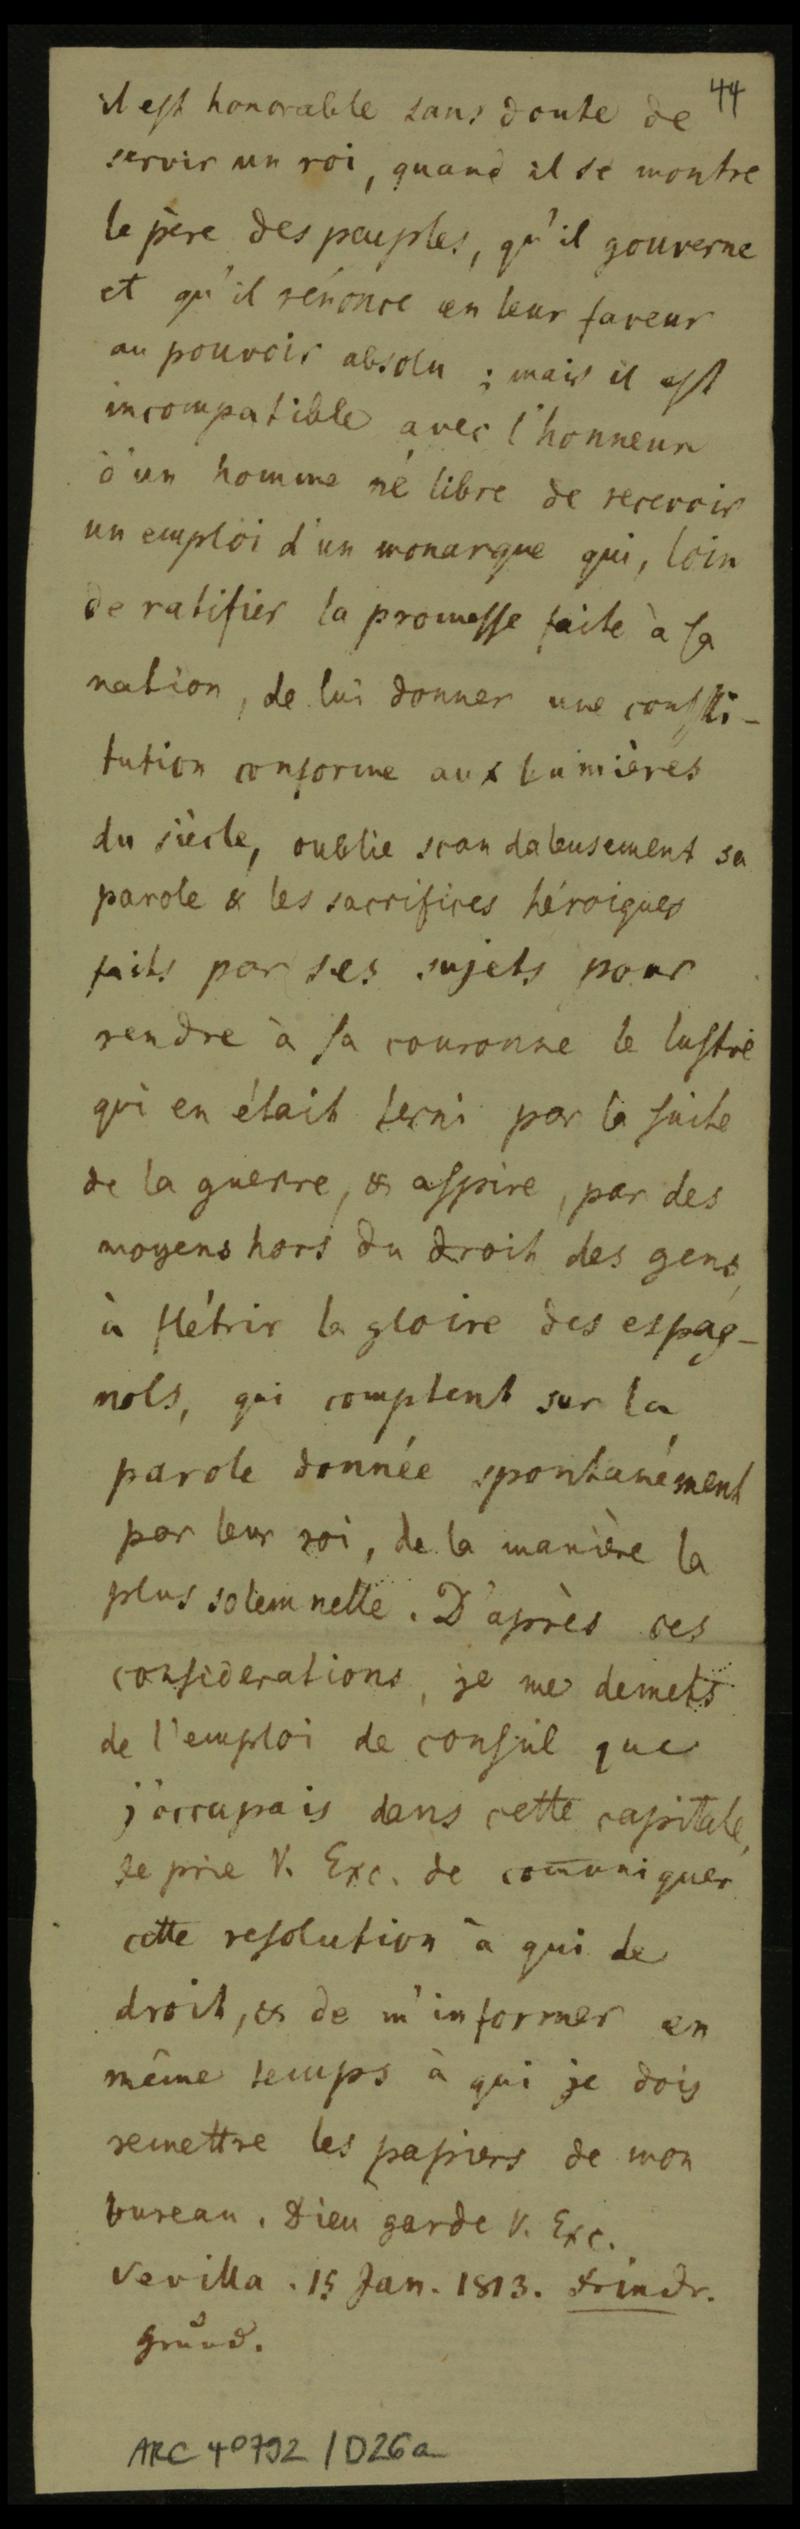 44
il est honorable sans doute de
servir un roi, quand il se montre
le père des peuples, qu'il gouverne
et qu'il rénonce en leur faveur
au pouvoir absolu ; mais il est
incompatible avec l'honneur
d'un homme né libre de recevoir
un emploi d'un monarque qui, loin
de ratifier la promesse faite à sa
nation, de lui donner une consti-
tution conforme aux lumières
du siècle, oublie scandaleusement sa
parole & les sacrifices héroiques
faits par ses sujets pour
rendre à sa couronne le lustre
qui en était terni par la suite
de la guerre, & aspire, par des
moyens hors du droit des gens,
à flétrir la gloire des espag-
nols, qui comptent sur la
parole donnée spontanément
par leur roi, de la manière la
plus solemnelle. D'après ces
considerations, je me demets
de l'emploi de consul que
j'occupais dans cette capitale,
Je prie V. Exc. de com̅uniquer
cette resolution à qui de
droit, & de m'informer en
même temps à qui je dois
remettre les papiers de mon
bureau. Dieu garde V. Exc.
Sevilla. 15 Jan. 1813.
ARC 40792 / D26a